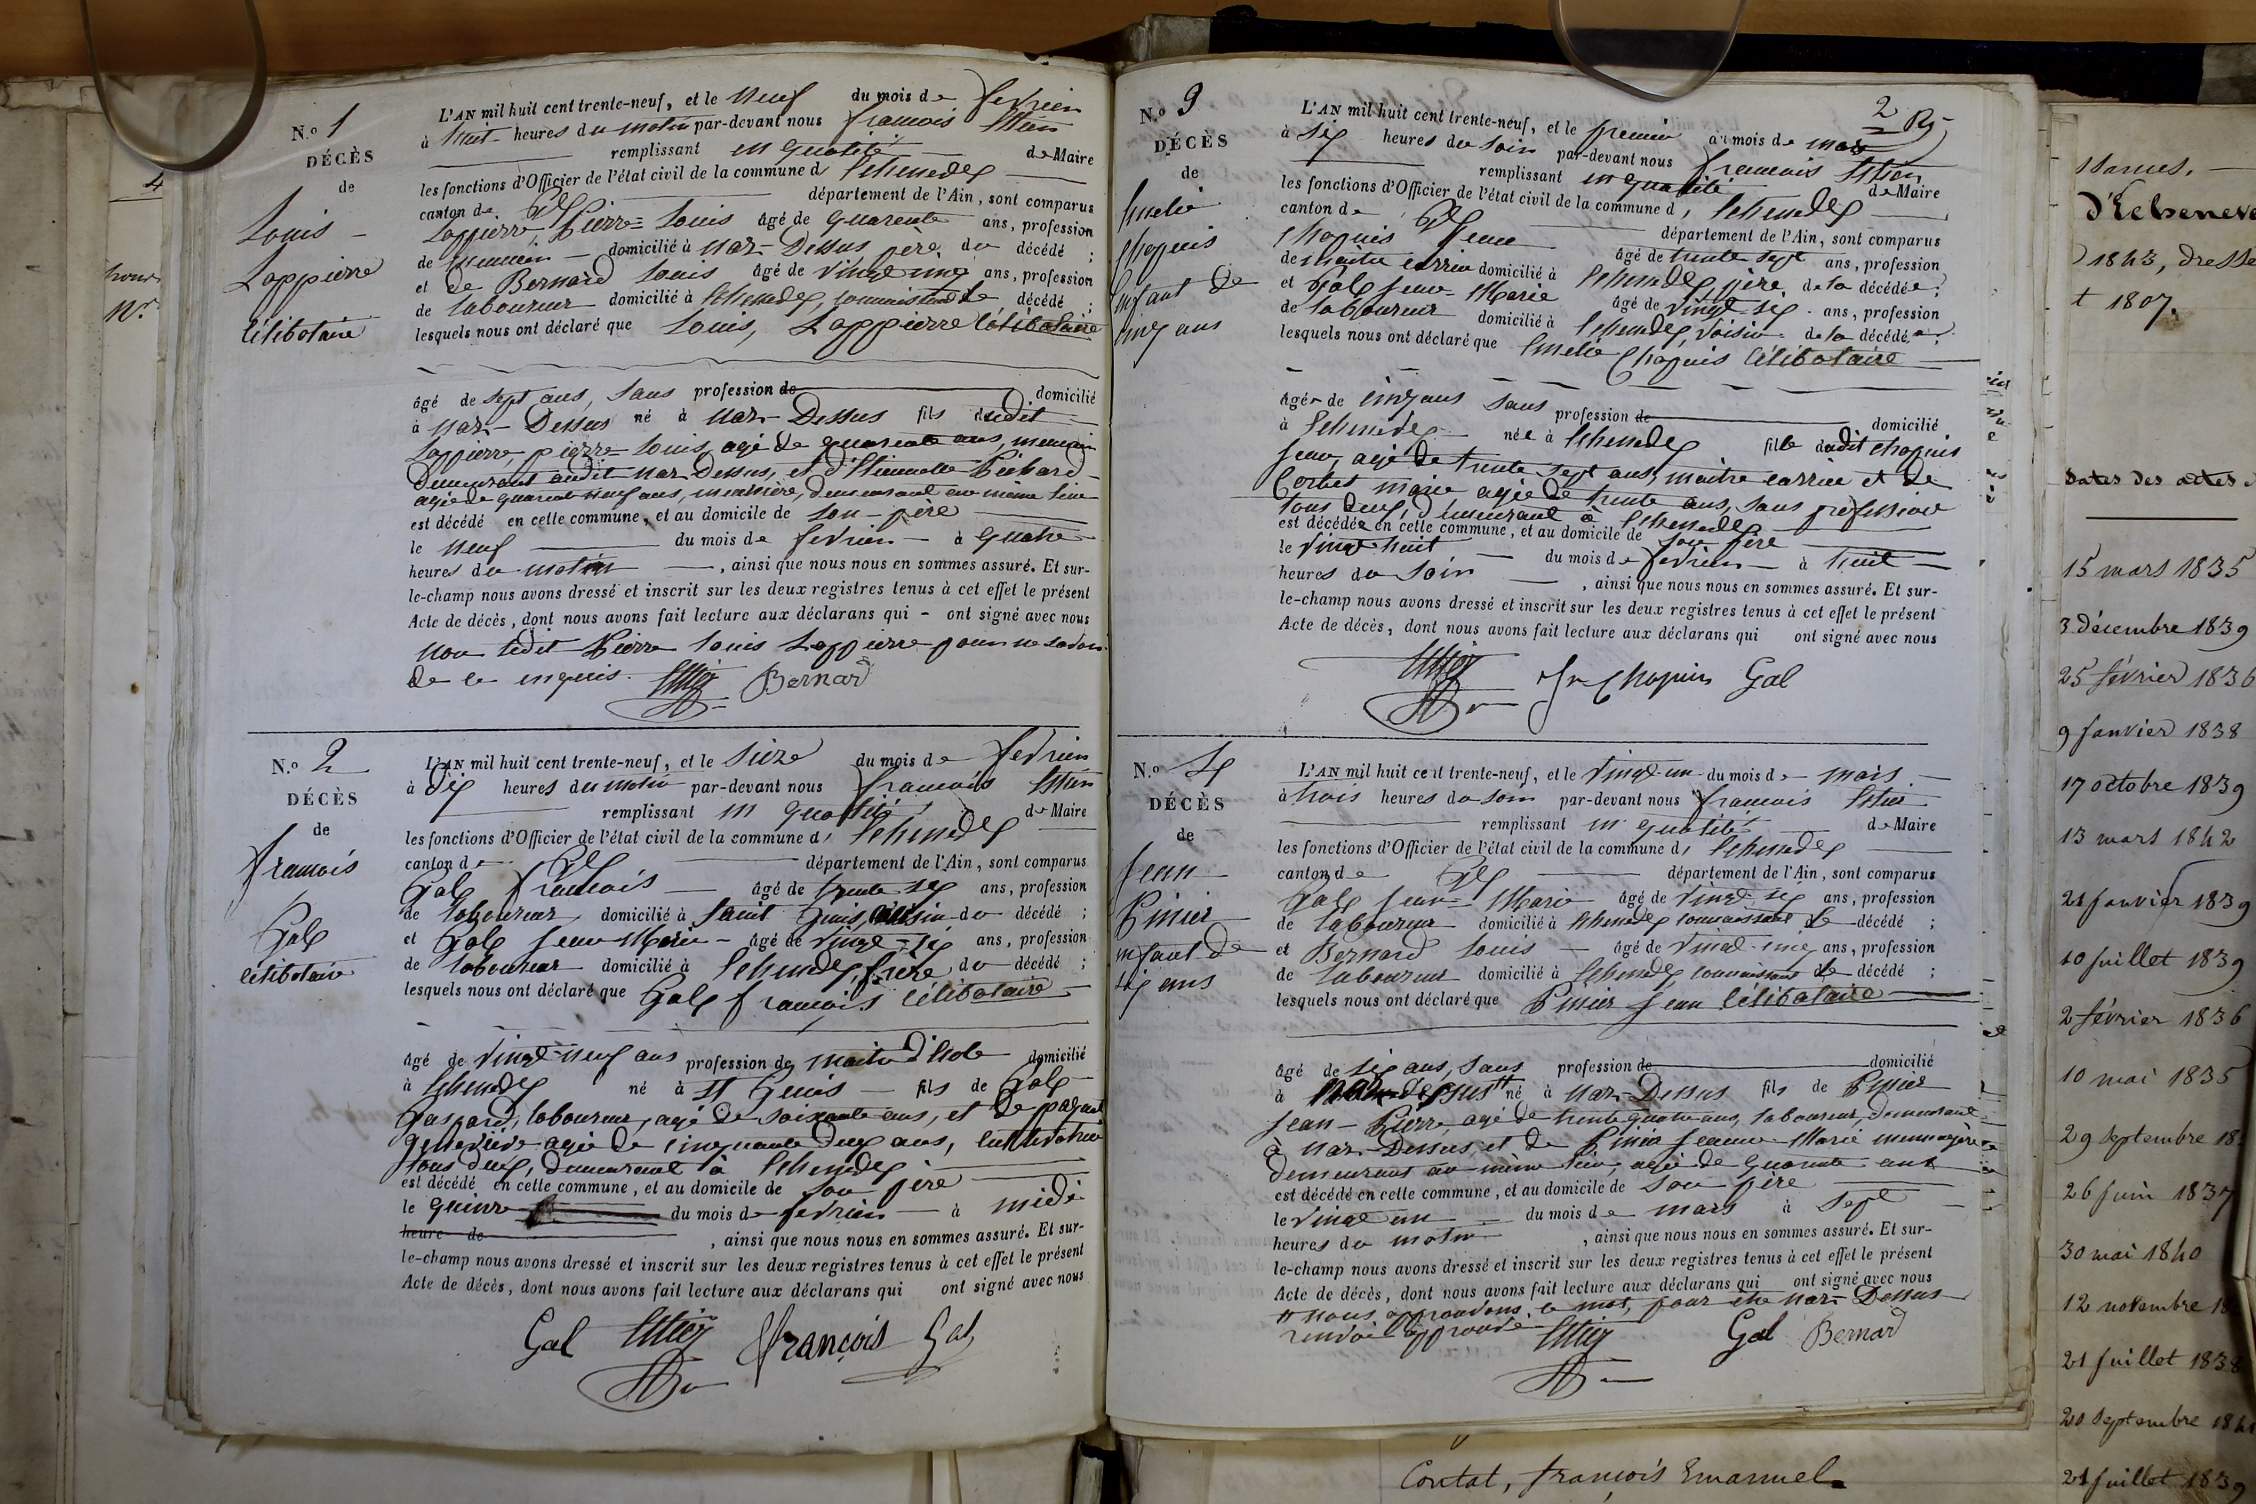 N.o 1
DÉCÈS
de
Louis
Lappierre
Célibataire
L'AN mil huit cent trente-neuf, et le neuf du mois de fevrier
à huit heures du matin par-devant nous francois
remplissant en qualité de Maire
les fonctions d'Officier de l'état civil de la commune d'
canton de Gex département de l'Ain, sont comparus
Lappierre, Pierre-Louis âgé de quarente ans, profession
de domicilié à Naz-Dessus père du décédé ;
et de Bernard Louis âgé de vingt cinq ans, profession
de laboureur domicilié à connaissant le décédé ;
lesquels nous ont déclaré que Louis, Lappierre Célibataire
âgé de sept ans, sans profession de domicilié
à Naz-Dessus né à Naz-Dessus fils dudit
Lappierre, pierre Louis, agé de quarente ans,
demeurant audit Naz-Dessus, et d'
agée de quarent neuf ans, demeurant au même lieu
est décédé en cette commune, et au domicile de son père
le neuf du mois de fevrier à quatre
heures du matin , ainsi que nous nous en sommes assuré. Et sur-
le-champ nous avons dressé et inscrit sur les deux registres tenus à cet effet le présent
Acte de décès, dont nous avons fait lecture aux déclarans qui - ont signé avec nous
non ledit Pierre Louis Lappierre pour ne savoir
de ce enquis. Bernard
N.o 2
DÉCÈS
de
francois
Gale
célibataire
L'AN mil huit cent trente-neuf, et le seize du mois de fevrier
à dix heures du matin par-devant nous francois
remplissant en qualité de Maire
les fonctions d'Officier de l'état civil de la commune d'
canton de Gex département de l'Ain, sont comparus
Gale francois âgé de trente six ans, profession
de laboureur domicilié à Saint Genis, voisin du décédé ;
et Gale Jean Marie - âgé de vingt-six ans, profession
de laboureur domicilié à frère du décédé ;
lesquels nous ont déclaré que Gale francois Célibataire
âgé de vingt neuf ans profession de maitre d'Ecole domicilié
à né à St Genis fils de Gale
Gaspard, laboureur, agé de soixante ans, et de
Geneviève agée de cinquante deux ans, cultivatrice
tous deux, demeurant à
est décédé en cette commune, et au domicile de son père
le quinze du mois de fevrier à midi
heure de , ainsi que nous nous en sommes assuré. Et sur-
le-champ nous avons dressé et inscrit sur les deux registres tenus à cet effet le présent
Acte de décès, dont nous avons fait lecture aux déclarans qui ont signé avec nous
Gal François Gal
N.o 3
DÉCÈS
de
Emelie
Chapuis
Enfant de
cinq ans
2
L'AN mil huit cent trente-neuf, et le premier du mois de mars
à six heures du soir par-devant nous francois
remplissant en qualité de Maire
les fonctions d'Officier de l'état civil de la commune d'
canton de Gex département de l'Ain, sont comparus
Chapuis Jean âgé de trente sept ans, profession
de maitre carrier domicilié à père de la décédée ;
et Gale Jean-Marie âgé de vingt six ans, profession
de laboureur domicilié à voisin de la décédée ;
lesquels nous ont déclaré que Emelie Chapuis Célibataire
âgée de cinq ans sans profession de domicilié
à née à fille dudit Chapuis
Jean, agé de trente sept ans, maitre carrier et de
Corbet marie agée de trente ans, sans profession
tous deux, demeurant à
est décédée en cette commune, et au domicile de son père
le vingt huit du mois de fevrier à huit
heures du soir , ainsi que nous nous en sommes assuré. Et sur-
le-champ nous avons dressé et inscrit sur les deux registres tenus à cet effet le présent
Acte de décès, dont nous avons fait lecture aux déclarans qui ont signé avec nous
Jn Chapuis Gal
N.o 4
DÉCÈS
de
Jean
Pinier
enfant de
six ans
L'AN mil huit cent trente-neuf, et le vingt-un du mois de mars
à trois heures du soir par-devant nous francois
remplissant en qualité de Maire
les fonctions d'Officier de l'état civil de la commune d'
canton de Gex département de l'Ain, sont comparus
Gale Jean-Marie âgé de vingt six ans, profession
de laboureur domicilié à connaissant le décédé ;
et Bernard Louis âgé de vingt-cinq ans, profession
de laboureur domicilié à connaissant le décédé ;
lesquels nous ont déclaré que Pinier Jean Célibataire
âgé de six ans, sans profession de domicilié
à né à Naz-Dessus fils de Pinier
Jean-Pierre, agé de trente quatre ans, laboureur, demeurant
à Naz-Dessus, et de Jeanne Marie
demeurant au même lieu, agée de quarante ans
est décédé en cette commune, et au domicile de son père
le vingt un du mois de mars à sept
heures du matin , ainsi que nous nous en sommes assuré. Et sur-
le-champ nous avons dressé et inscrit sur les deux registres tenus à cet effet le présent
Acte de décès, dont nous avons fait lecture aux déclarans qui ont signé avec nous
nous approuvons le mot, pour être Naz-Dessus
renvoi approuvé Gal Bernard
1843, dressé
t 1807.
Dates des actes
15 mars 1835
3 décembre 1839
25 février 1836
9 janvier 1838
17 octobre 1839
13 mars 1842
21 janvier 1839
10 juillet 1839
2 février 1836
10 mai 1835
29 septembre 18
26 juin 1837
30 mai 1840
12 novembre 18
21 juillet 1838
20 septembre 184
21 juillet 1839
Contat, françois Emanuel